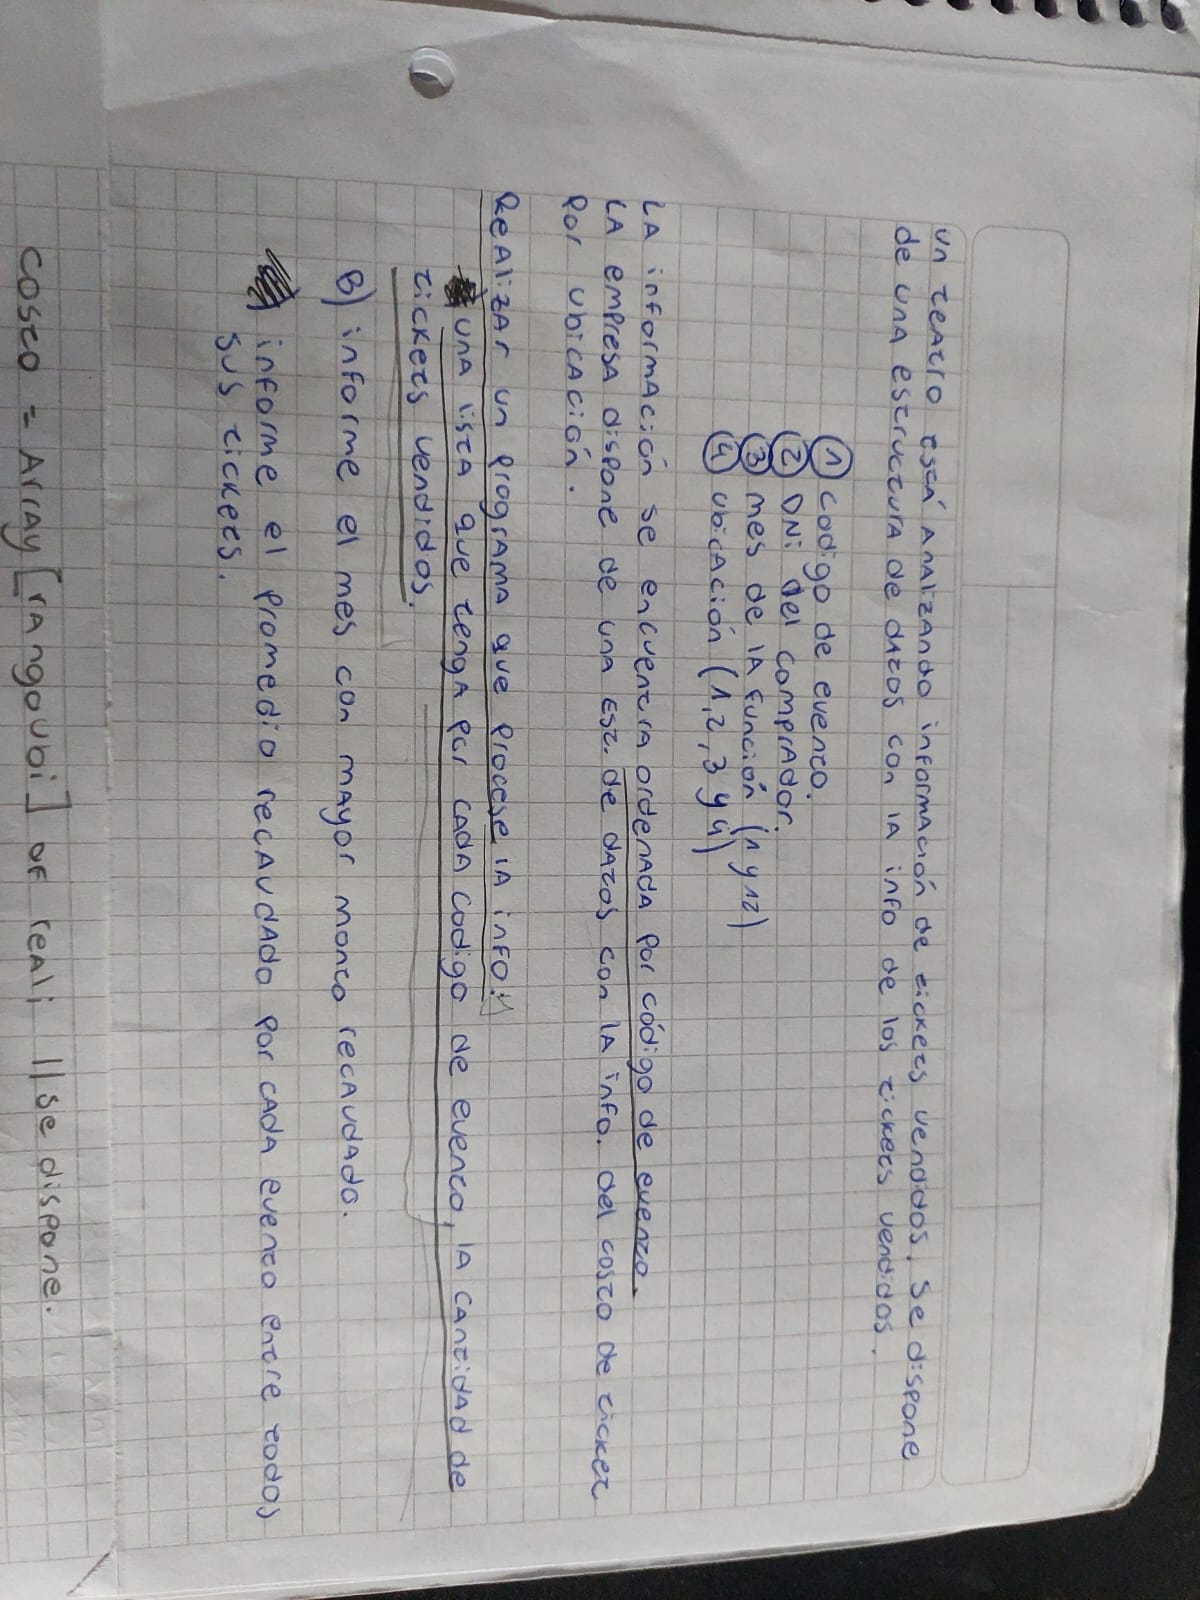 Un teatro está analizando información de tickets vendidos, se dispone
de una estructura de datos con la info de los tickets vendidos.
① codigo de evento.
② DNI del comprador.
③ mes de la función (1 y 12)
④ ubicación (1, 2, 3 y 4)
La información se encuentra ordenada por código de evento.
La empresa dispone de una est. de datos con la info. del costo de ticket
por ubicación.
Realizar un programa que procese la info:
una lista que tenga por cada codigo de evento, la cantidad de
tickets vendidos.
B) informe el mes con mayor monto recaudado.
) informe el promedio recaudado por cada evento entre todos
sus tickets.
costo = Array [rangoubi] of real; || se dispone.